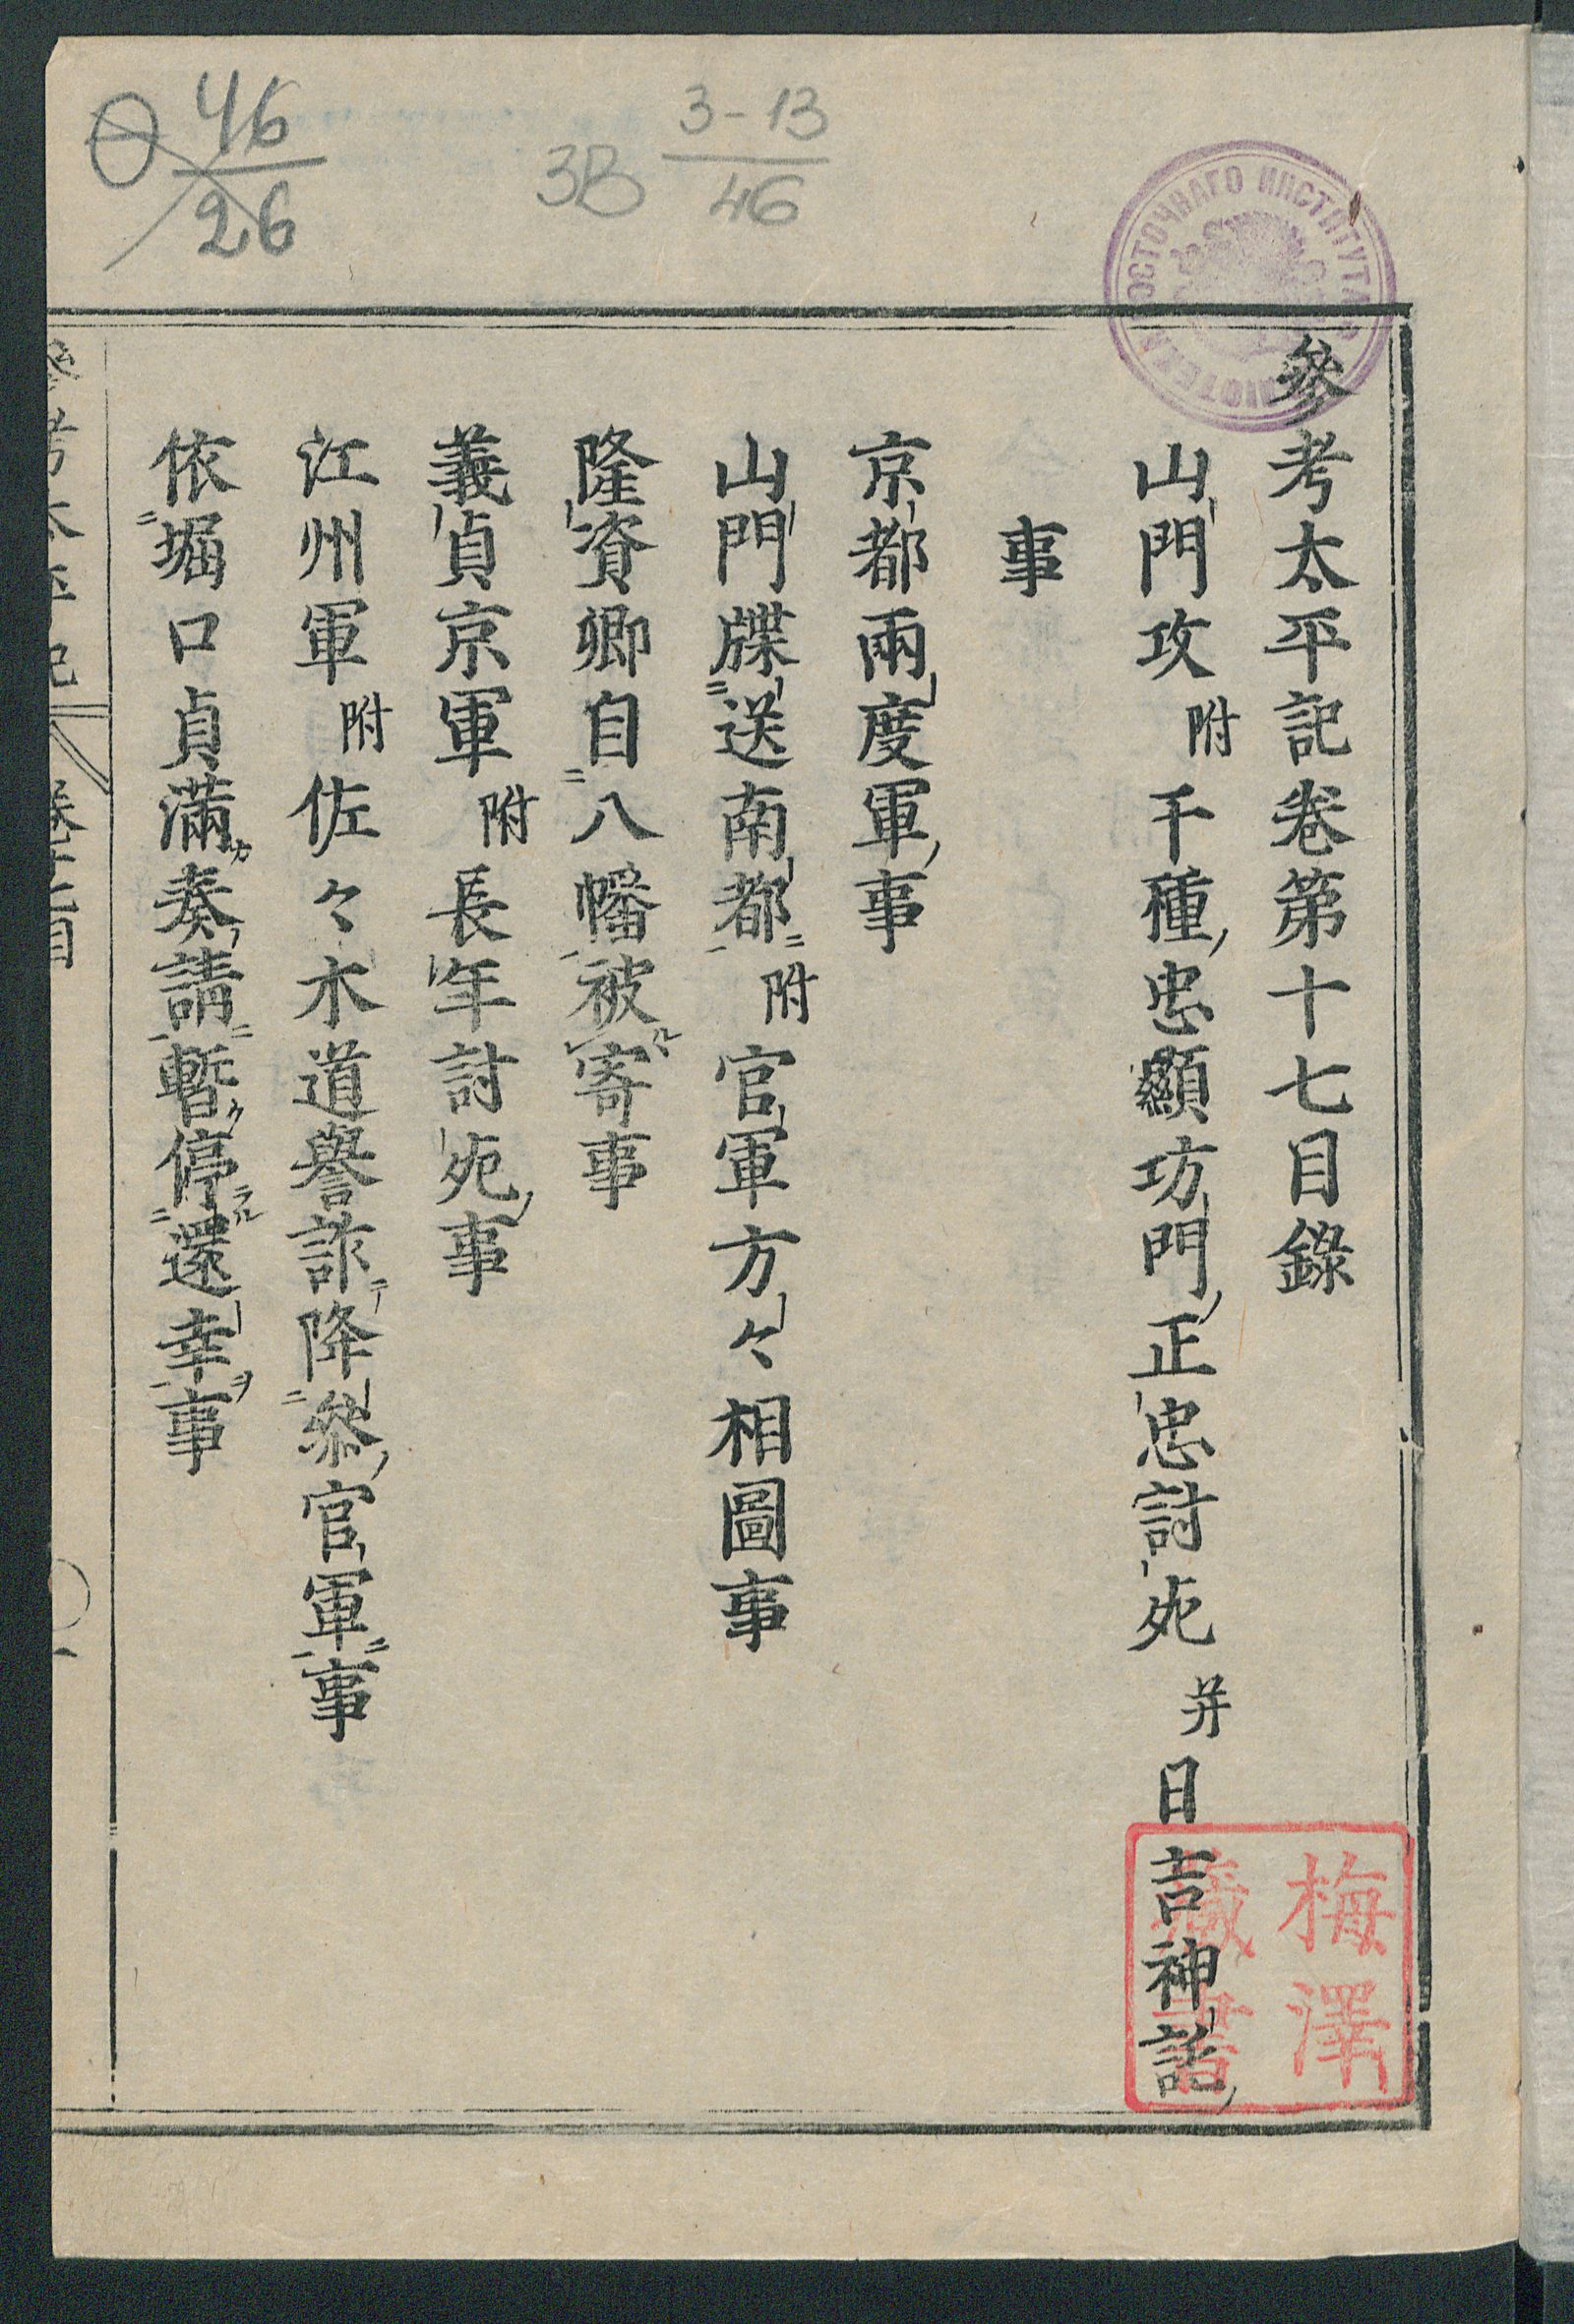 46
26
3-13
3B 46
ВОСТОЧНАГО ИНСТИТУТА
參考太平記卷第十七目錄
山門攻附千種忠顯坊門正忠討死并日吉神託
事
京都兩度軍事
山門牒送南都附官軍方々相圖事
隆資卿自八幡被寄事
義貞京軍附長年討死事
江州軍附佐々木道譽詐降參官軍事
依堀口貞滿奏請暫停還幸事
梅澤
藏書